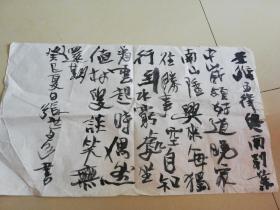 王維五律終南別業
中歲頗好道晚家
南山陲興來每獨
往勝事空自知
行到水窮處坐
看雲起時偶然
值林叟談笑無
還期
癸巳夏日張世書